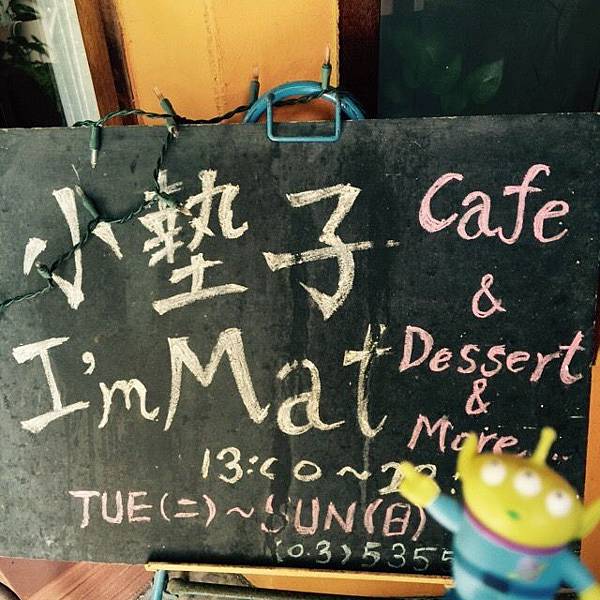 小墊子
I'm Mat
Cafe
&
Dessert
&
More...
13:00~
TUE(二)~SUN(日)
(03)5355